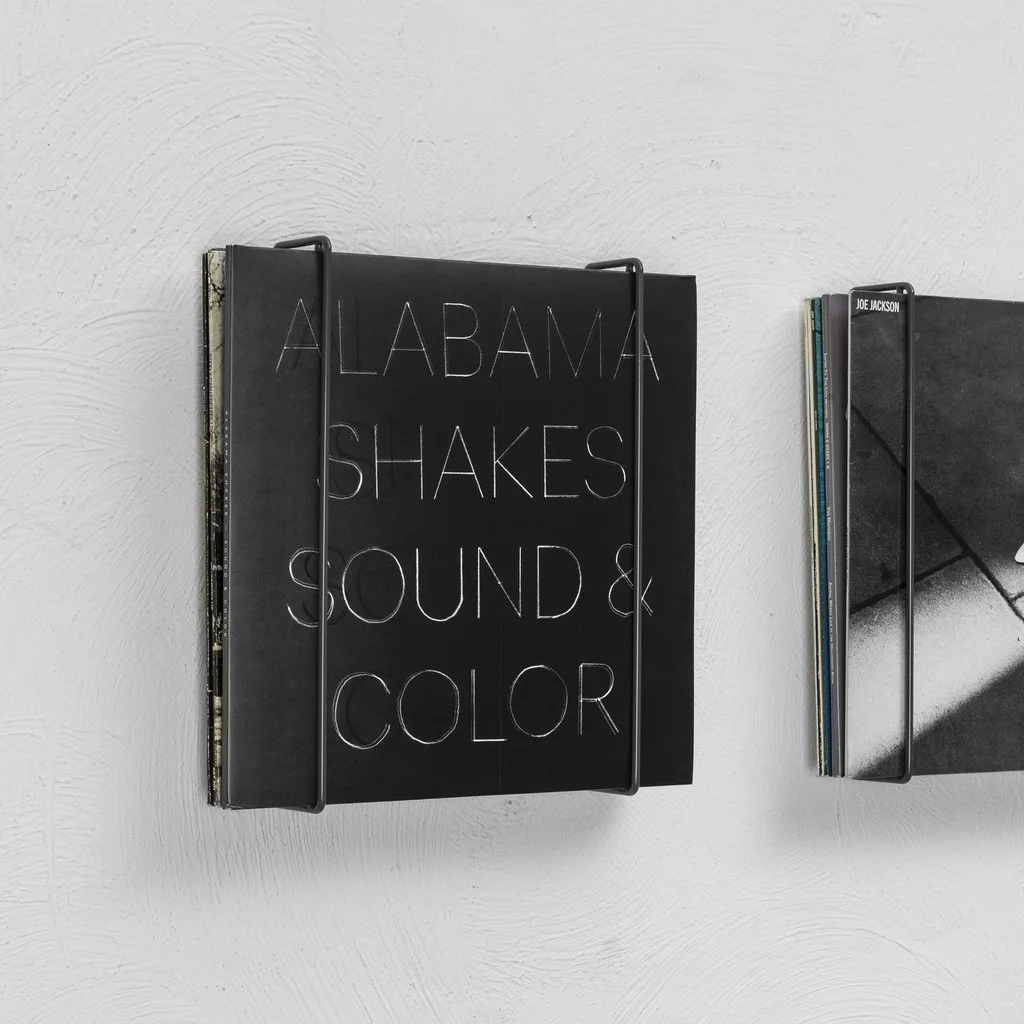 ALABAMA
SHAKES
SOUND &
COLOR
ALABAMA SHAKES SOUND & COLOR
JOE JACKSON